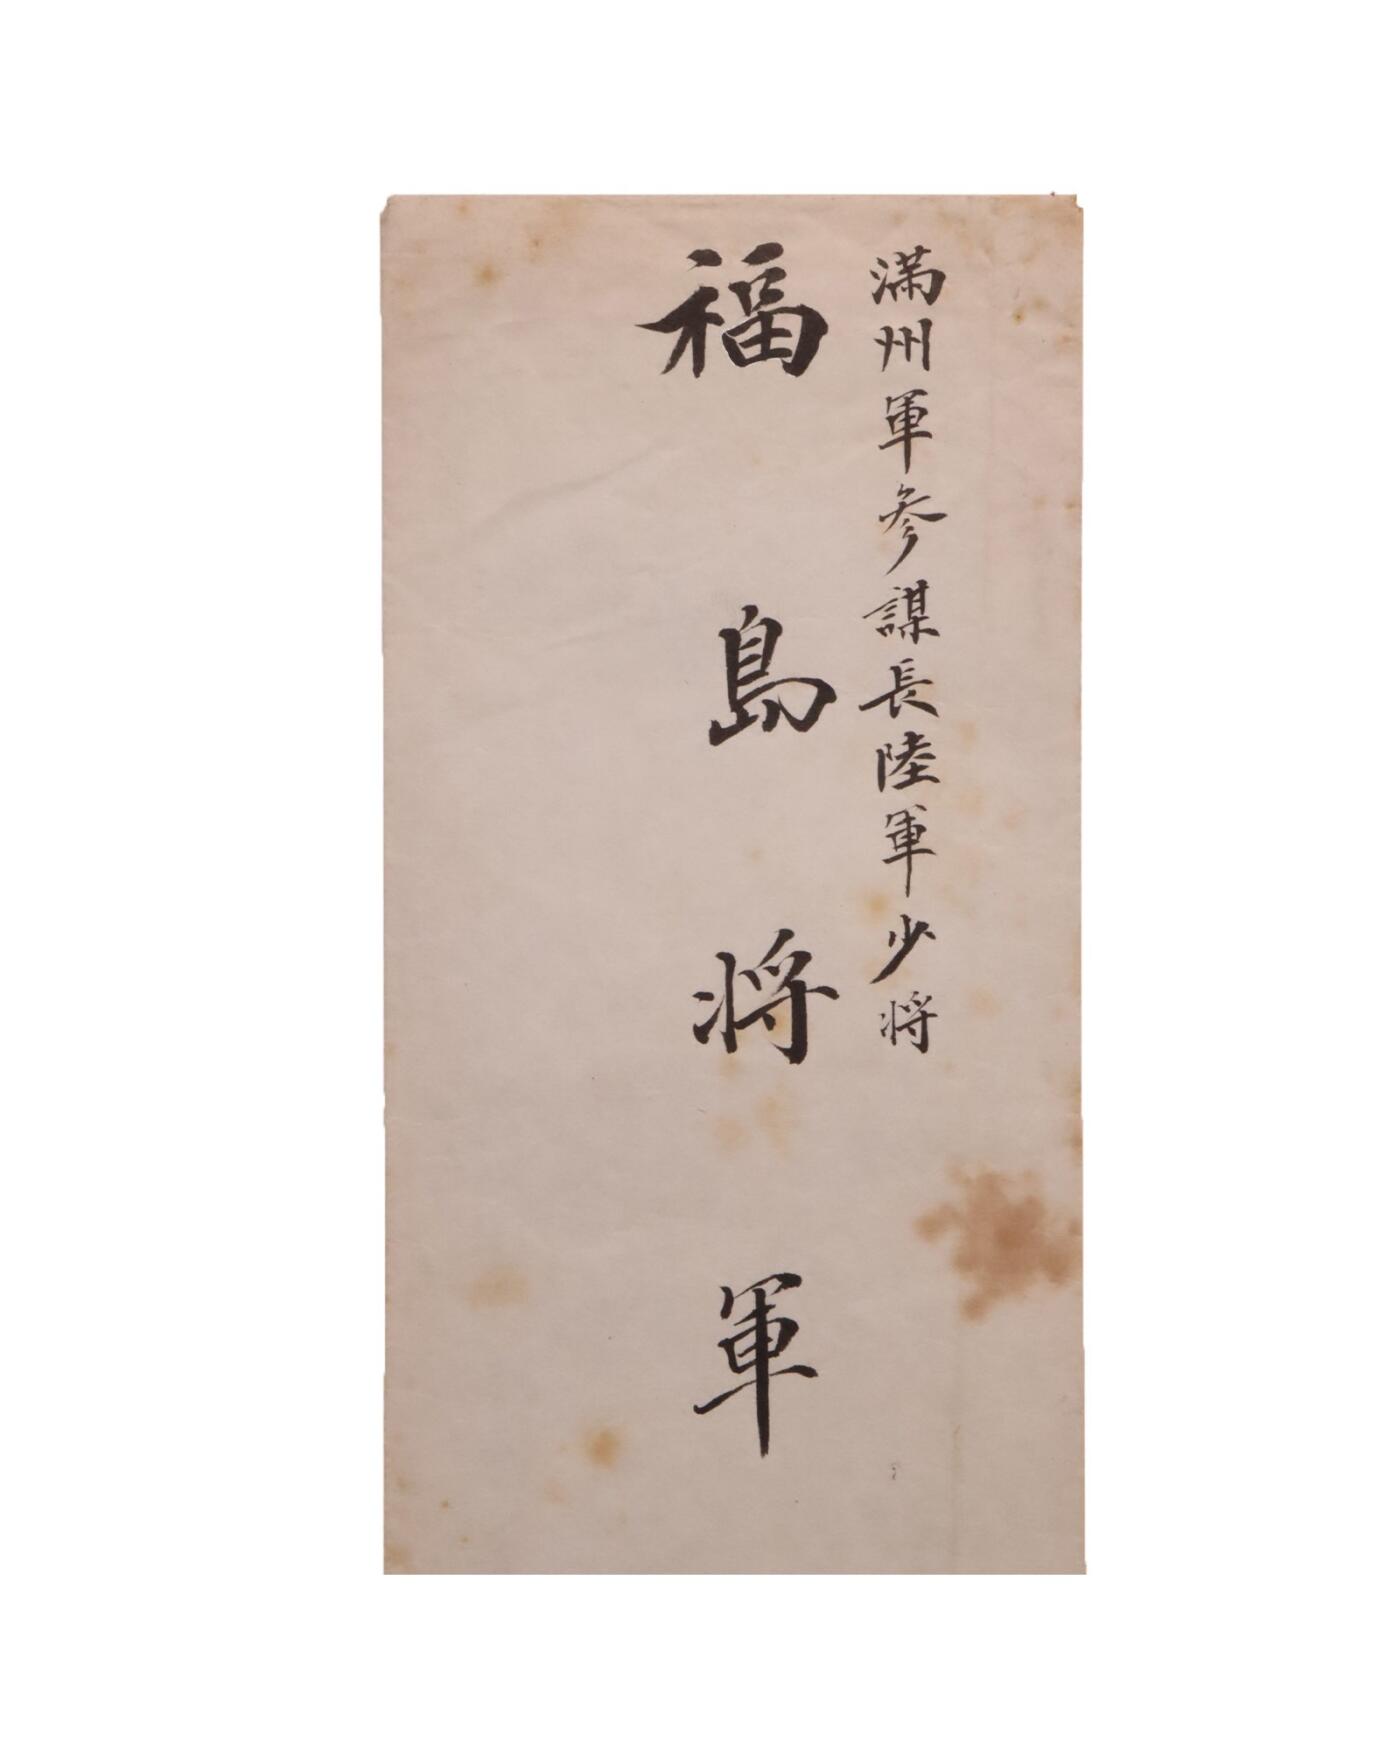 満州軍参謀長陸軍少将
福島将軍